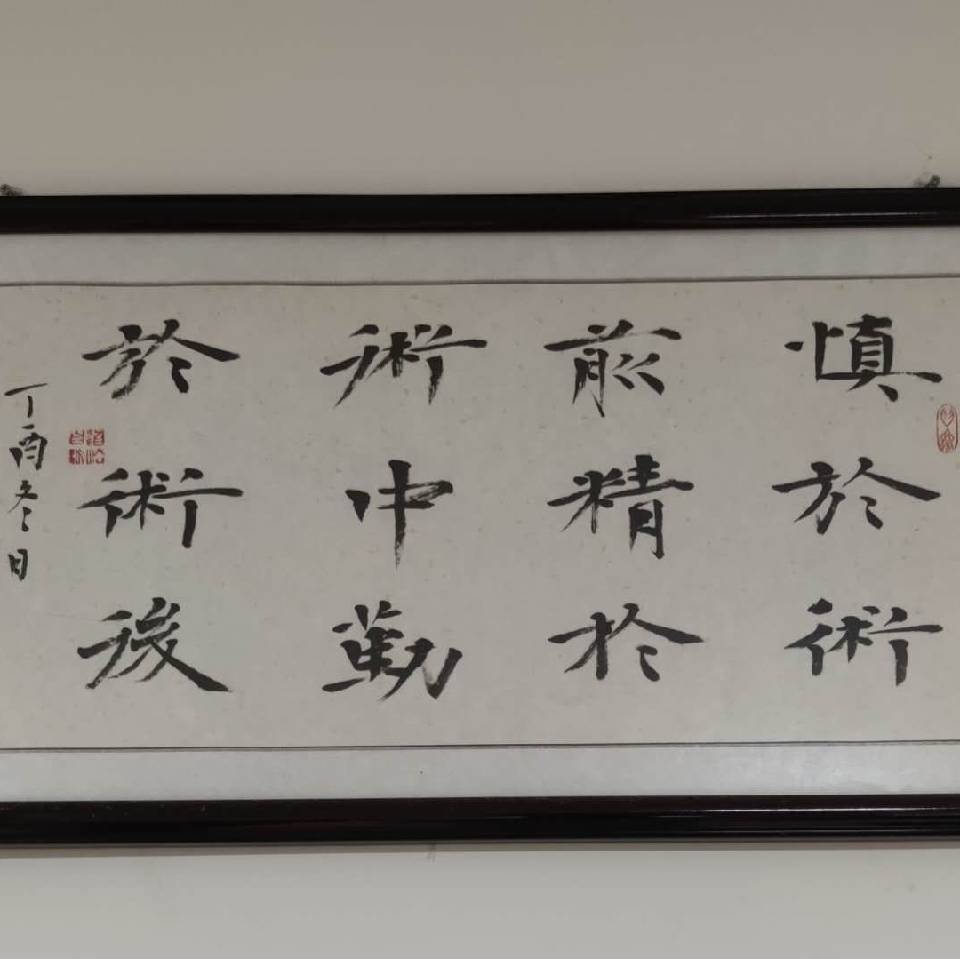 慎於術
前精於
術中勤
於術後
丁酉冬日